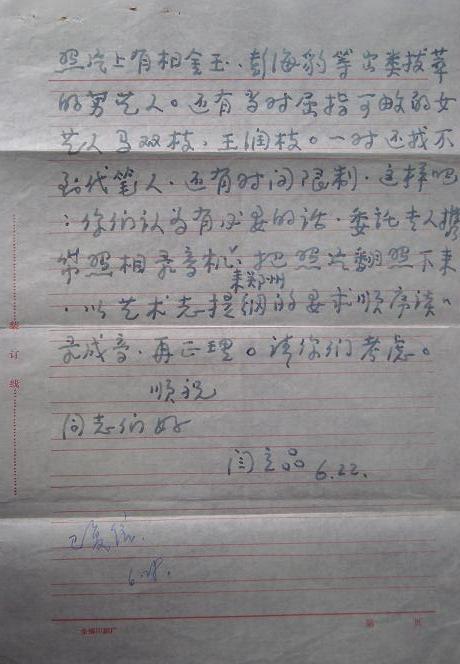 照片上有相金玉、彭海豹等出类拔萃
的男艺人。还有当时屈指可数的女
艺人马双枝、王润枝。一时还找不
到代笔人，还有时间限制，这样吧
：你们认为有必要的话，委託专人携
带照相录音机，把照片翻照下来
来郑州
，以艺术志提纲的要求顺序谈，
录成音，再正理。请你们考虑。
顺祝
同志们好
闫立品 6.22.
已复信.
6.28.
装订线
第 页